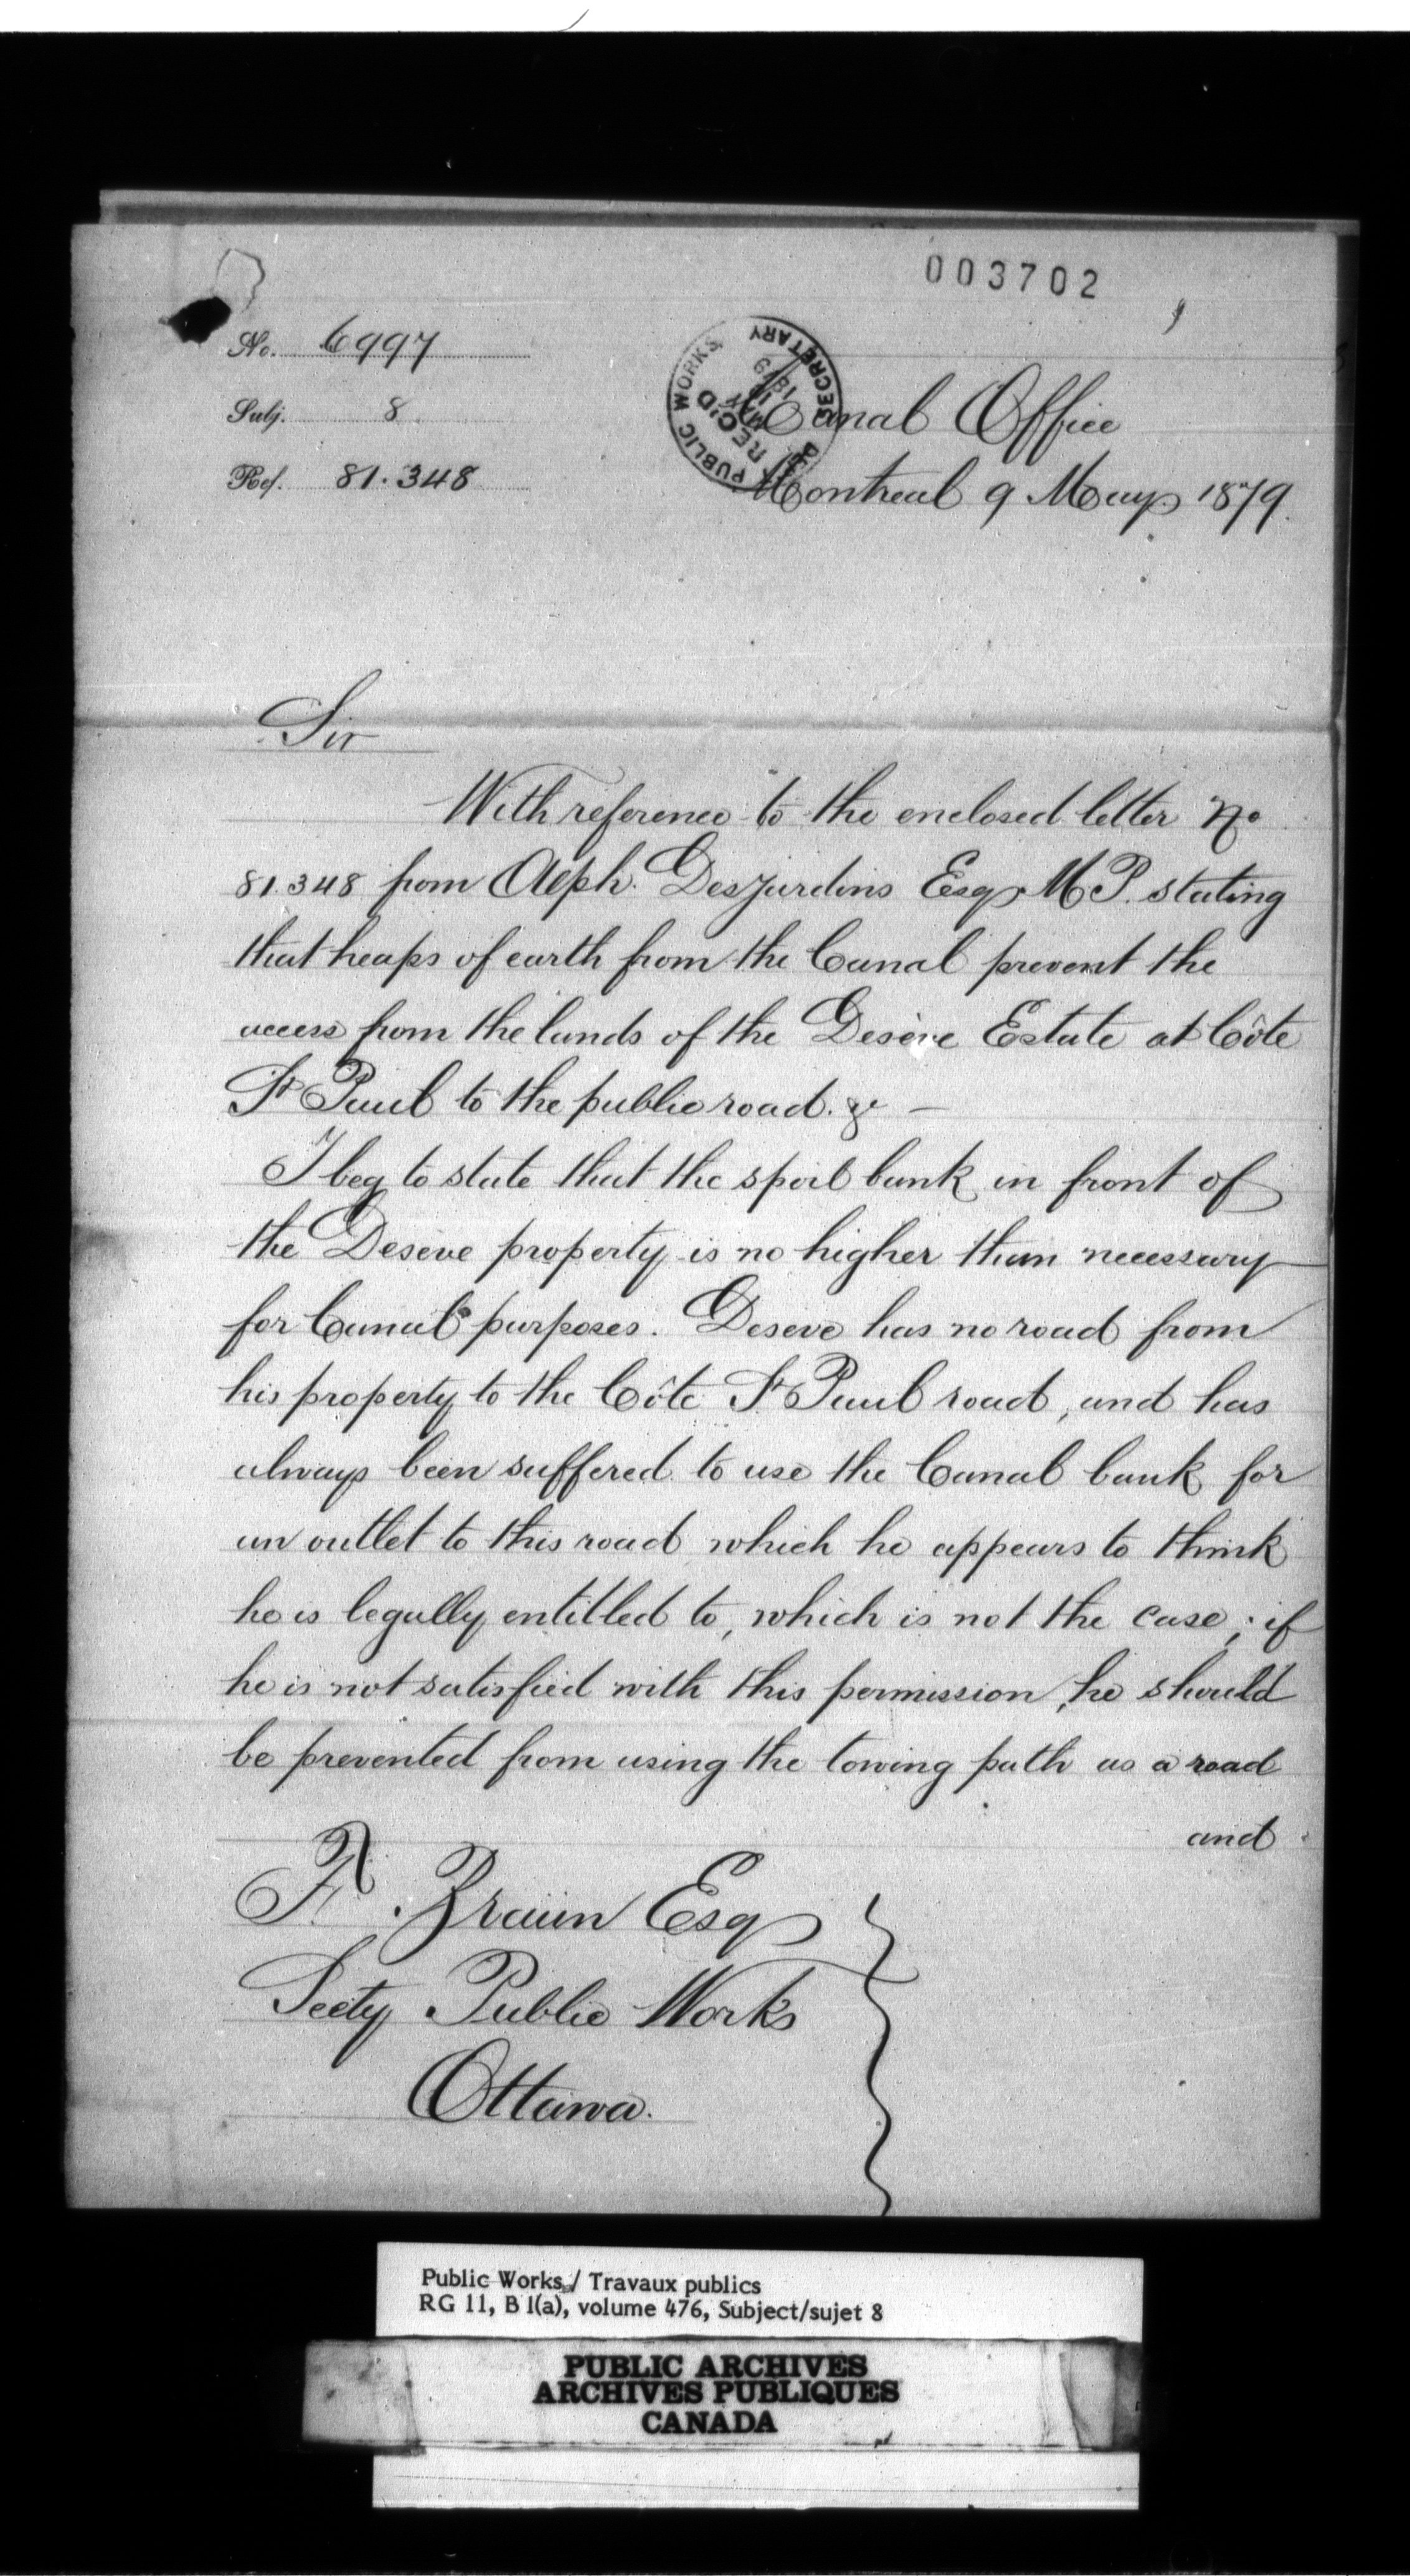 003702
No. 6997
Subj. 8
Ref. 81.348
PUBLIC WORKS DEP. SECRETARY
REC'D
MAY
1879
Canal Office
Montreal 9 May 1879.
Sir
With reference to the enclosed letter No
81.348 from Alph. Desjardins Esq M P. stating
that heaps of earth from the Canal prevent the
access from the lands of the Desève Estate at Côte
St Paul to the public road. &c —
I beg to state that the spoil bank in front of
the Deseve property is no higher than necessary
for Canal purposes. Deseve has no road from
his property to the Côte St Paul road, and has
always been suffered to use the Canal bank for
an outlet to this road which he appears to think
he is legally entitled to, which is not the case; if
he is not satisfied with this permission, he should
be prevented from using the towing path as a road
and
F. Braun Esq
Secty Public Works
Ottawa.
Public Works / Travaux publics
RG 11, B 1(a), volume 476, Subject/sujet 8
PUBLIC ARCHIVES
ARCHIVES PUBLIQUES
CANADA